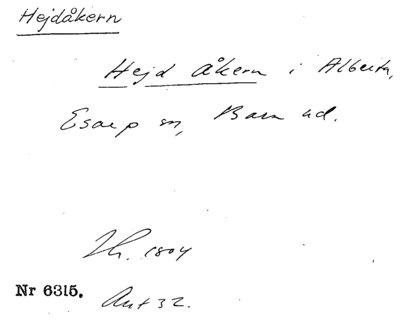 Hejdåkern
Hejd åkern i Alberta,
Esarp sn, Bara hd.
1804
Nr 6315.
Ant 32.